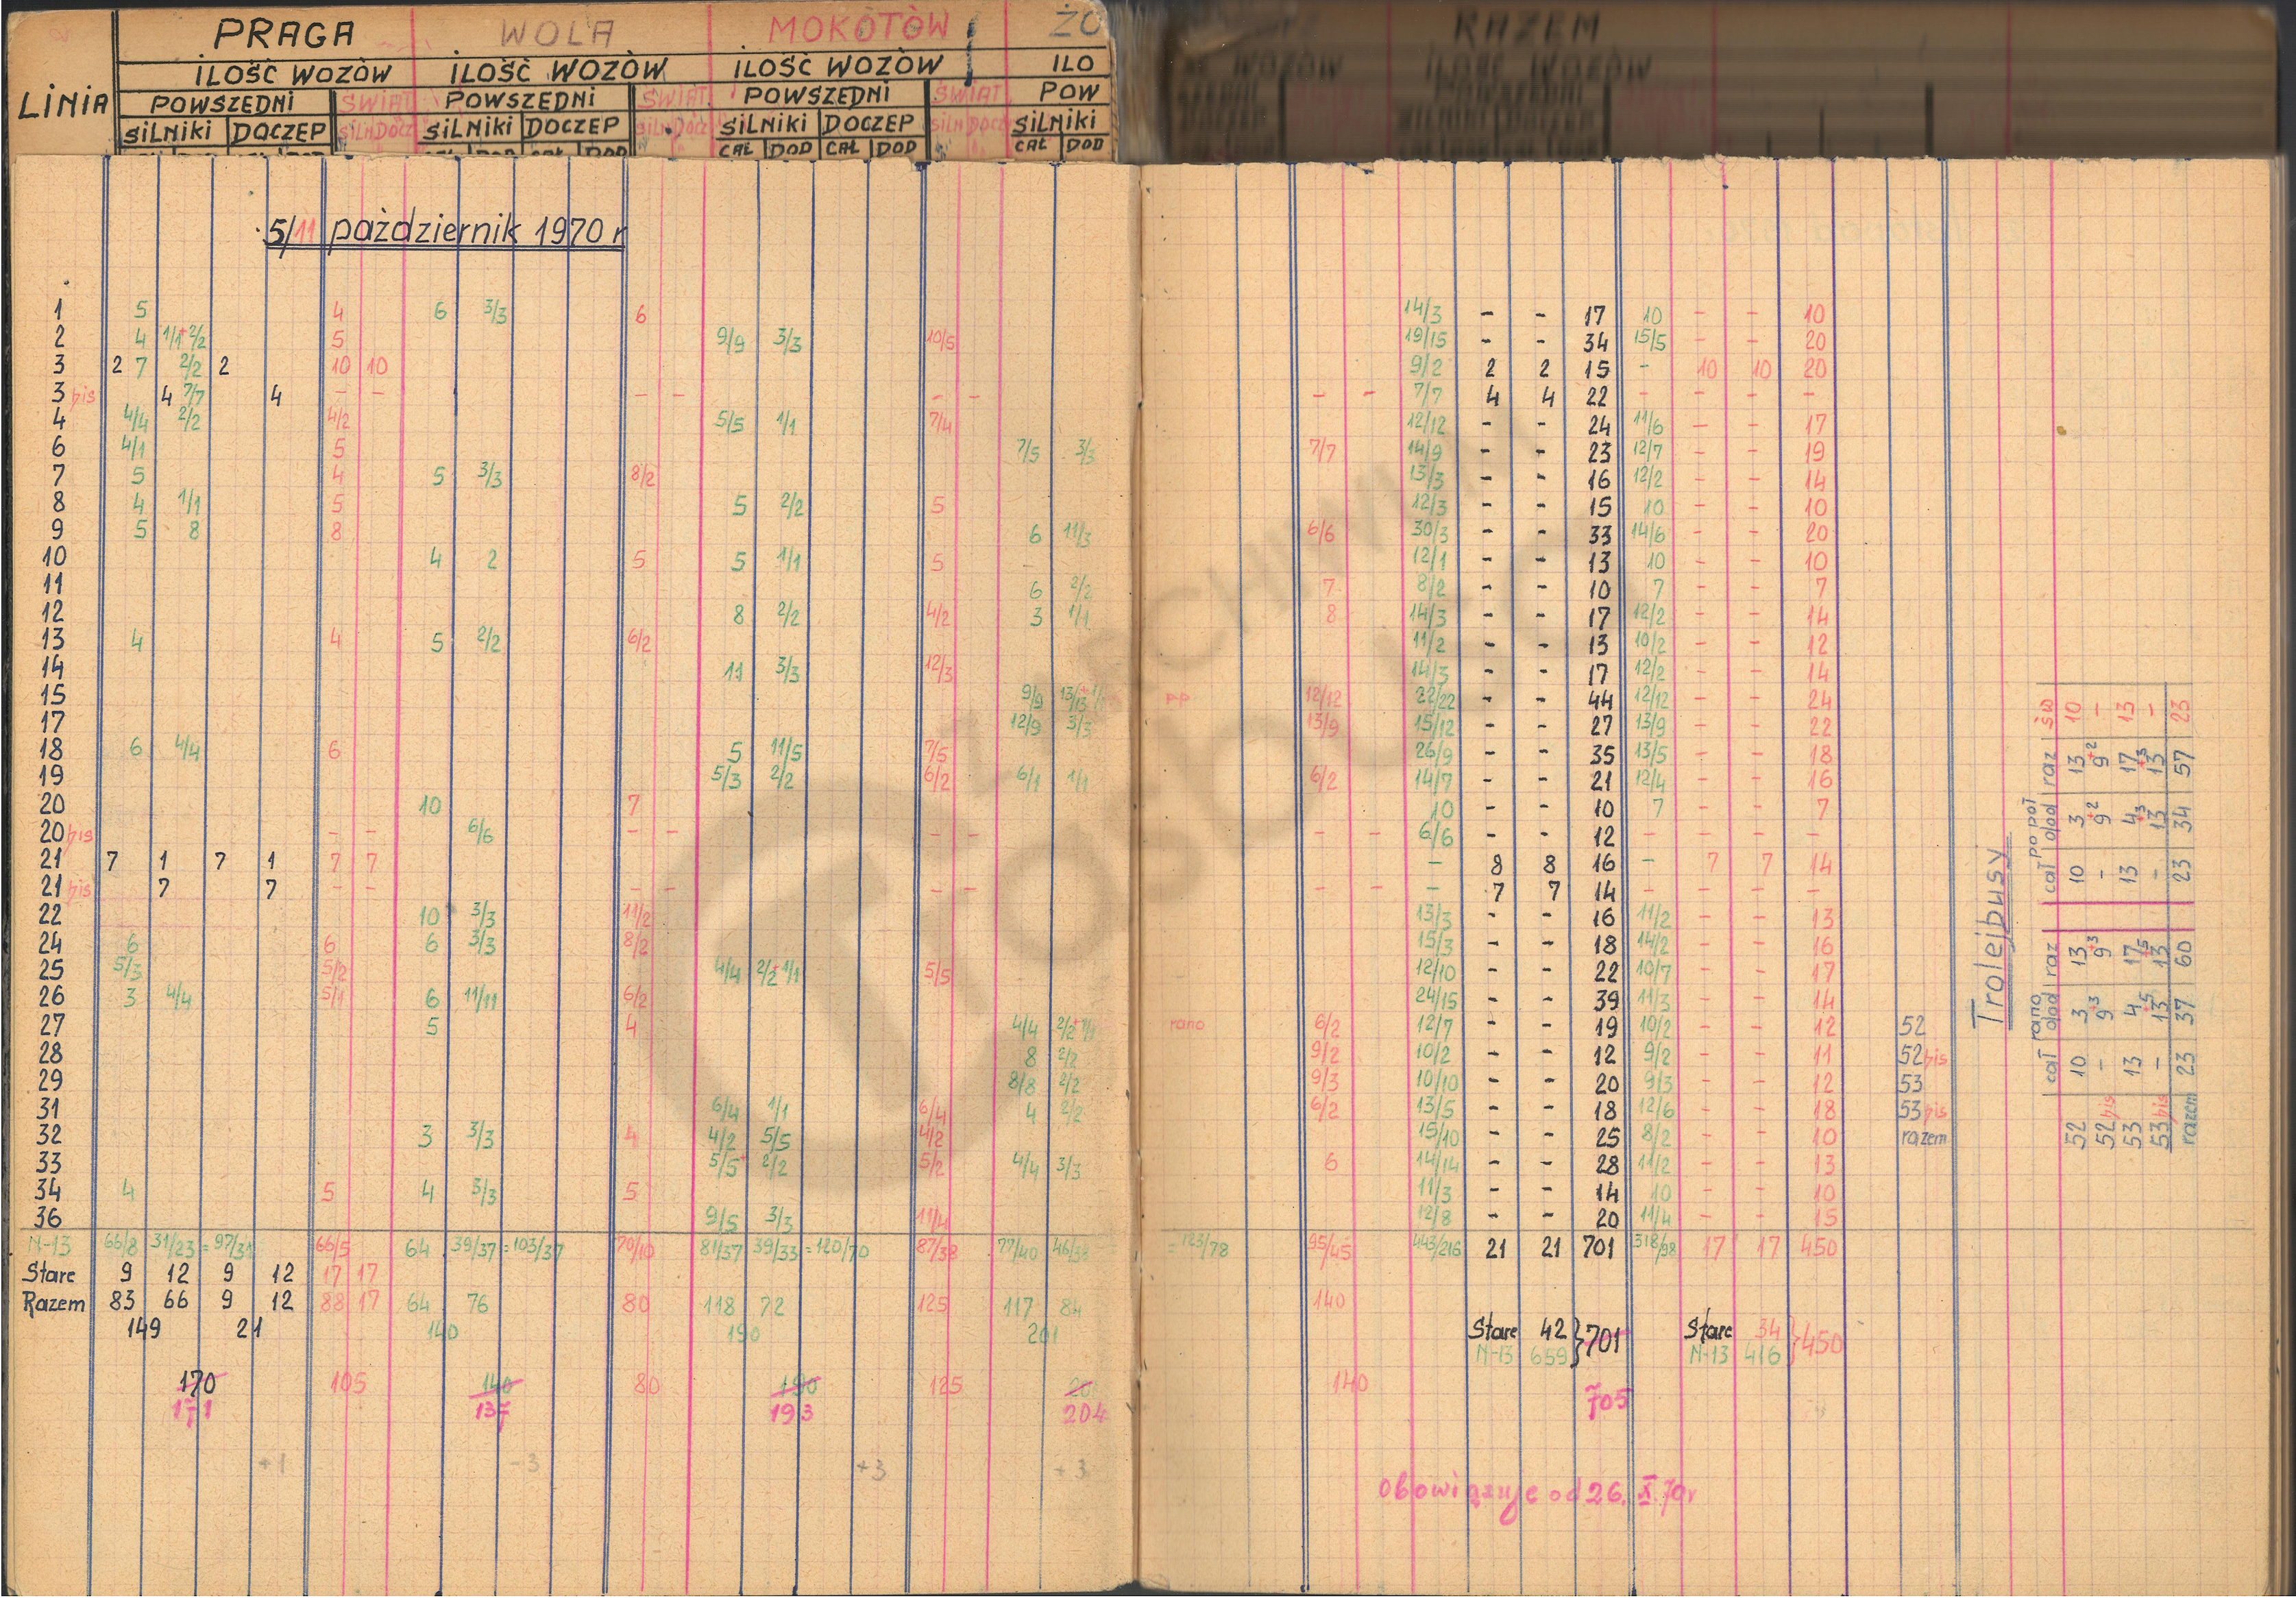 PRAGA WOLA MOKOTÓW ŻO RAZEM
ILOŚĆ WOZÓW ILOŚĆ WOZÓW ILOŚĆ WOZÓW ILO WOZÓW ILOŚĆ WOZÓW
LINIA POWSZEDNI ŚWIĄT POWSZEDNI ŚWIĄT POWSZEDNI ŚWIĄT POW
SILNIKI DOCZEP SILN DOCZ SILNIKI DOCZEP SILN DOCZ SILNIKI DOCZEP SILN DOCZ SILNIKI
CAŁ DOD CAŁ DOD CAŁ DOD
5/11 październik 1970 r
1 5 4 6 3/3 6 14/3 - - 17 10 - - 10
2 4 1/1+2/2 5 9/9 3/3 10/5 19/15 - - 34 15/5 - - 20
3 2 7 2/2 2 10 10 9/2 2 2 15 - 10 10 20
3 bis 4 7/7 4 - - - - - - - - 7/7 4 4 22 - - - -
4 4/4 2/2 4/2 5/5 1/1 7/4 12/12 - - 24 11/6 - - 17
6 4/1 5 7/5 3/3 7/7 14/9 - - 23 12/7 - - 19
7 5 4 5 3/3 8/2 13/3 - - 16 12/2 - - 14
8 4 1/1 5 5 2/2 5 12/3 - - 15 10 - - 10
9 5 8 8 6 11/3 6/6 30/3 - - 33 14/6 - - 20
10 4 2 5 5 1/1 5 12/1 - - 13 10 - - 10
11 6 2/2 7 8/2 - - 10 7 - - 7
12 8 2/2 4/2 3 1/1 8 14/3 - - 17 12/2 - - 14
13 4 4 5 2/2 6/2 11/2 - - 13 10/2 - - 12
14 11 3/3 12/3 14/3 - - 17 12/2 - - 14
15 9/9 13/13+1/1 pp 12/12 22/22 - - 44 12/12 - - 24
17 12/9 3/3 13/9 15/12 - - 27 13/9 - - 22
18 6 4/4 6 5 11/5 7/5 26/9 - - 35 13/5 - - 18
19 5/3 2/2 6/2 6/1 1/1 6/2 14/7 - - 21 12/4 - - 16
20 10 7 10 - - 10 7 - - 7
20 bis - - 6/6 - - - - - - 6/6 - - 12 - - - -
21 7 1 7 1 7 7 - 8 8 16 - 7 7 14
21 bis 7 7 - - - - - - - - - 7 7 14 - - - -
22 10 3/3 11/2 13/3 - - 16 11/2 - - 13
24 6 6 6 3/3 8/2 15/3 - - 18 14/2 - - 16
25 5/3 5/2 4/4 2/2+1/1 5/5 12/10 - - 22 10/7 - - 17
26 3 4/4 5/1 6 11/11 6/2 24/15 - - 39 11/3 - - 14
27 5 4 4/4 2/2+1/1 rano 6/2 12/7 - - 19 10/2 - - 12 52
28 8 2/2 9/2 10/2 - - 12 9/2 - - 11 52 bis
29 8/8 2/2 9/3 10/10 - - 20 9/3 - - 12 53
31 6/4 1/1 6/4 4 2/2 6/2 13/5 - - 18 12/6 - - 18 53 bis
32 3 3/3 4 4/2 5/5 4/2 15/10 - - 25 8/2 - - 10 razem
33 5/5+ 2/2 5/2 4/4 3/3 6 14/14 - - 28 11/2 - - 13
34 4 5 4 3/3 5 11/3 - - 14 10 - - 10
36 9/5 3/3 11/4 12/8 - - 20 11/4 - - 15
N-13 66/8 31/23 = 97/31 66/5 64 39/37 = 103/37 70/10 81/37 39/33 = 120/70 87/38 77/40 46/38 = 123/78 95/45 443/216 21 21 701 318/98 17 17 450
Stare 9 12 9 12 17 17
Razem 83 66 9 12 88 17 64 76 80 118 72 125 117 84 140
149 21 140 190 201
Stare 42 } 701 Stare 34 } 450
N-13 659 N-13 416
170 105 140 80 190 125 20 140
171 137 193 204 705
+1 -3 +3 +3
obowiązuje od 26. X. 70r
Trolejbusy
rano po poł
cał dod raz cał dod raz św
52 10 3 13 10 3 13 10
52 bis - 9+3 9+3 - 9+2 9+2 -
53 13 4 17 13 4 17 13
53 bis - 13+5 13+5 - 13+3 13+3 -
razem 23 37 60 23 34 57 23